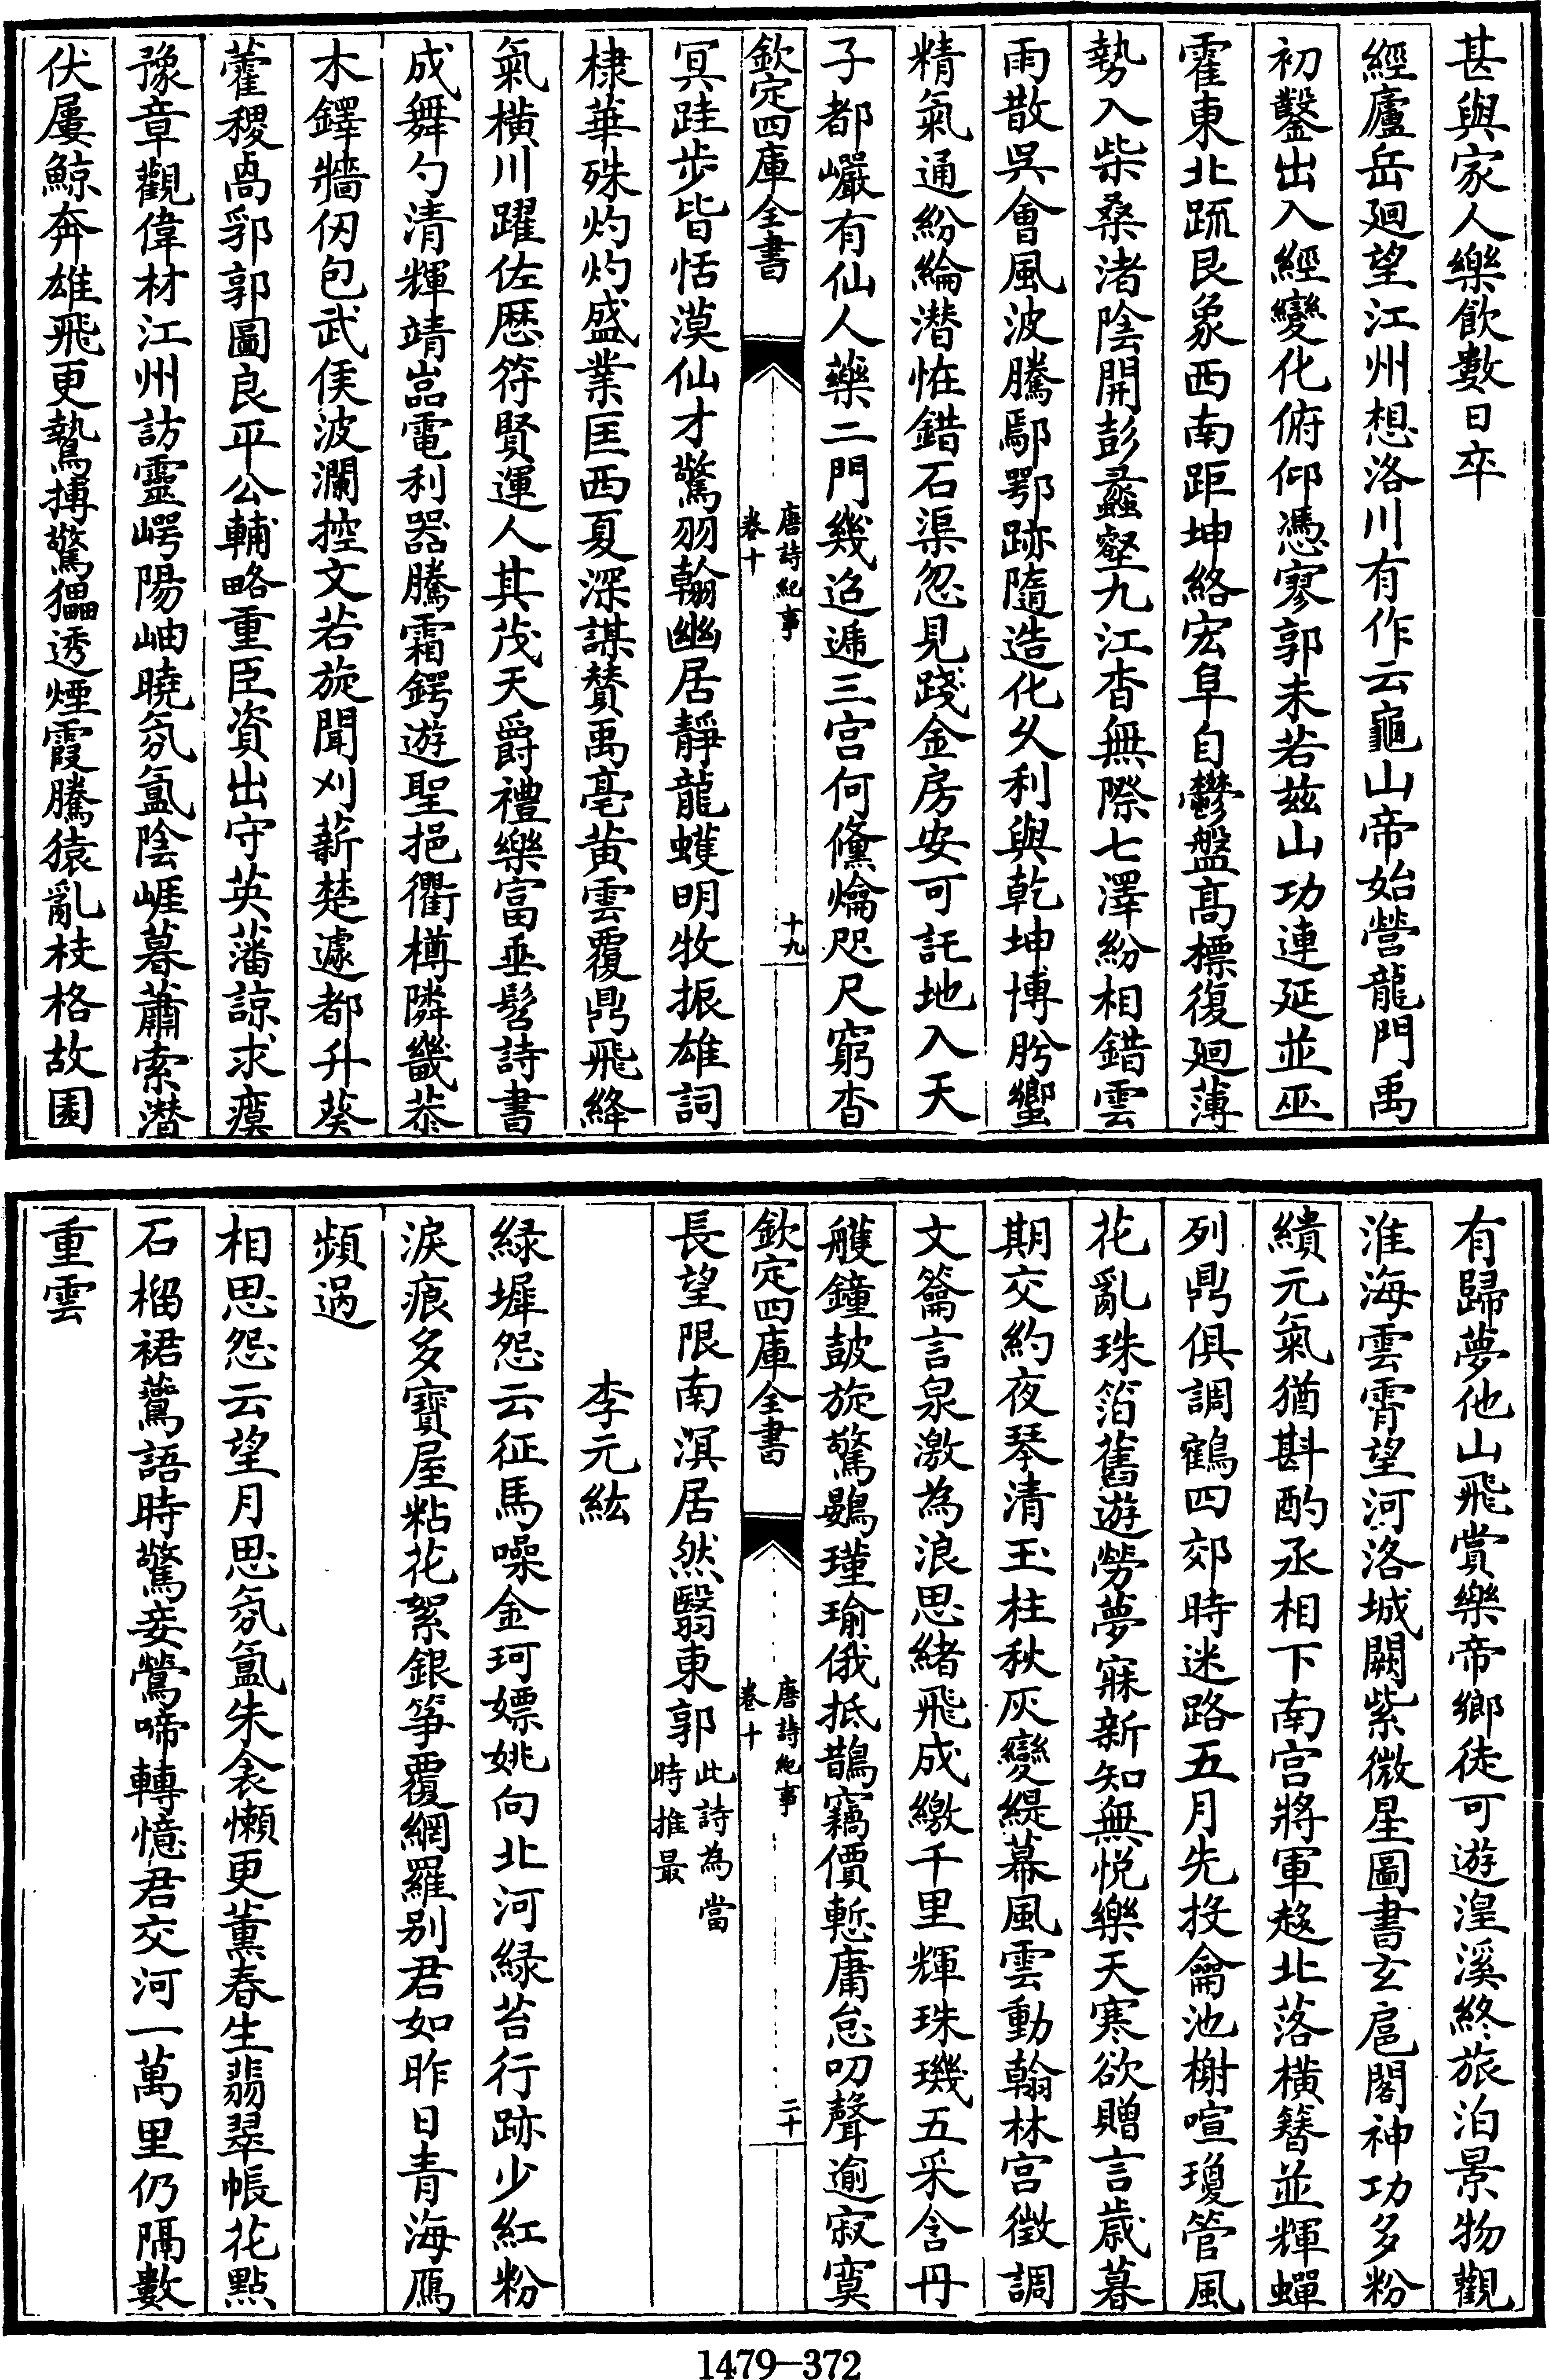 甚與家人樂飲數日卒
經廬岳廻望江州想洛川有作云龜山帝始營龍門禹
初鑿出入經變化俯仰憑寥郭未若兹山功連延並巫
霍東北疏艮象西南距坤絡宏阜自鬱盤髙標復廻薄
勢入柴桑渚陰開彭蠡壑九江杳無際七澤紛相錯雲
雨散吳會風波騰鄢鄂跡隨造化久利與乾坤博肹蠁
精氣通紛綸潜怪錯石渠忽見踐金房安可託地入天
子都巗有仙人藥二門幾迢遞三宫何儵爚咫尺窮杳
欽定四庫全書
唐詩紀事
卷十
十九
冥跬步皆恬漠仙才驚羽翰幽居靜龍蠖明牧振雄詞
棣華殊灼灼盛業匡西夏深謀賛禹亳黄雲覆鼎飛絳
氣橫川躍佐厯符賢運人其茂天爵禮樂富垂髫詩書
成舞勺清輝靖嵓電利器騰霜鍔遊聖挹衢樽隣畿恭
木鐸牆仭包武侯波瀾控文若旋聞刈薪楚遽都升葵
藿稷卨郛郭圖良平公輔略重臣資出守英藩諒求瘼
豫章觀偉材江州訪靈崿陽岫曉氛氲陰崕暮蕭索潜
伏屢鯨奔雄飛更鷙搏驚獼透煙霞騰猿亂枝格故園
有歸夢他山飛賞樂帝鄉徒可遊湟溪終旅泊景物觀
淮海雲霄望河洛城闕紫微星圖書玄扈閣神功多粉
繢元氣猶斟酌丞相下南宫將軍趍北落橫簪並輝蟬
列鼎俱調鶴四郊時迷路五月先投龠池榭喧瓊管風
花亂珠箔舊遊勞夢寐新知無悦樂天寒欲贈言歳暮
期交約夜琴清玉柱秋灰變緹幕風雲動翰林宫徵調
文籥言泉激為浪思緒飛成繳千里輝珠璣五采含丹
雘鐘鼓旋驚鷃瑾瑜俄抵鵲竊價慙庸怠叨聲逾寂寞
欽定四庫全書
唐詩紀事
卷十
二十
長望限南溟居然翳東郭此詩為當
時推最
李元紘
緑墀怨云征馬噪金珂嫖姚向北河緑苔行跡少紅粉
淚痕多寳屋粘花絮銀筝覆網羅别君如昨日青海鴈
頻過
相思怨云望月思氛氲朱衾懶更薰春生翡翠帳花點
石榴裙鷰語時驚妾鶯啼轉憶君交河一萬里仍隔數
重雲
1479-372